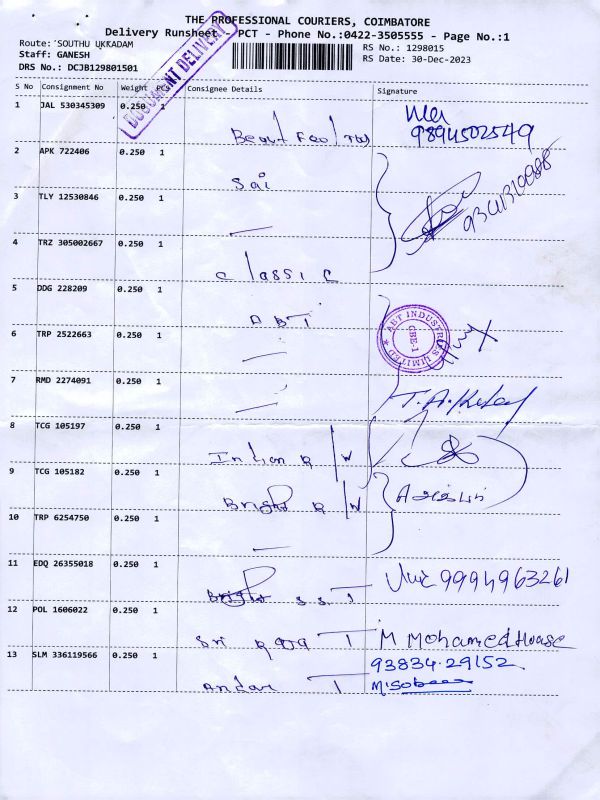 THE PROFESSIONAL COURIERS, COIMBATORE
Delivery Runsheet - PCT - Phone No.:0422-3505555 - Page No.:1
Route: SOUTHU UKKADAM
Staff: GANESH
DRS No.: DCJB129801501
RS No.: 1298015
RS Date: 30-Dec-2023
DOCUMENT DELIVERY
S No Consignment No Weight PCS Consignee Details Signature
1 JAL 530345309 0.250 1
9894502549
2 APK 722406 0.250 1
Sai
3 TLY 12530846 0.250 1
4 TRZ 305002667 0.250 1
Classic
5 DDG 228209 0.250 1
ABT
ABT INDUSTRIES LIMITED
CBE-1
6 TRP 2522663 0.250 1
7 RMD 2274091 0.250 1
8 TCG 105197 0.250 1
Indian R/W
9 TCG 105182 0.250 1
Bright R/W
10 TRP 6254750 0.250 1
11 EDQ 26355018 0.250 1
9994963261
S.S.T
12 POL 1606022 0.250 1
Sri T M Mohamed
13 SLM 336119566 0.250 1
93834.29152
T